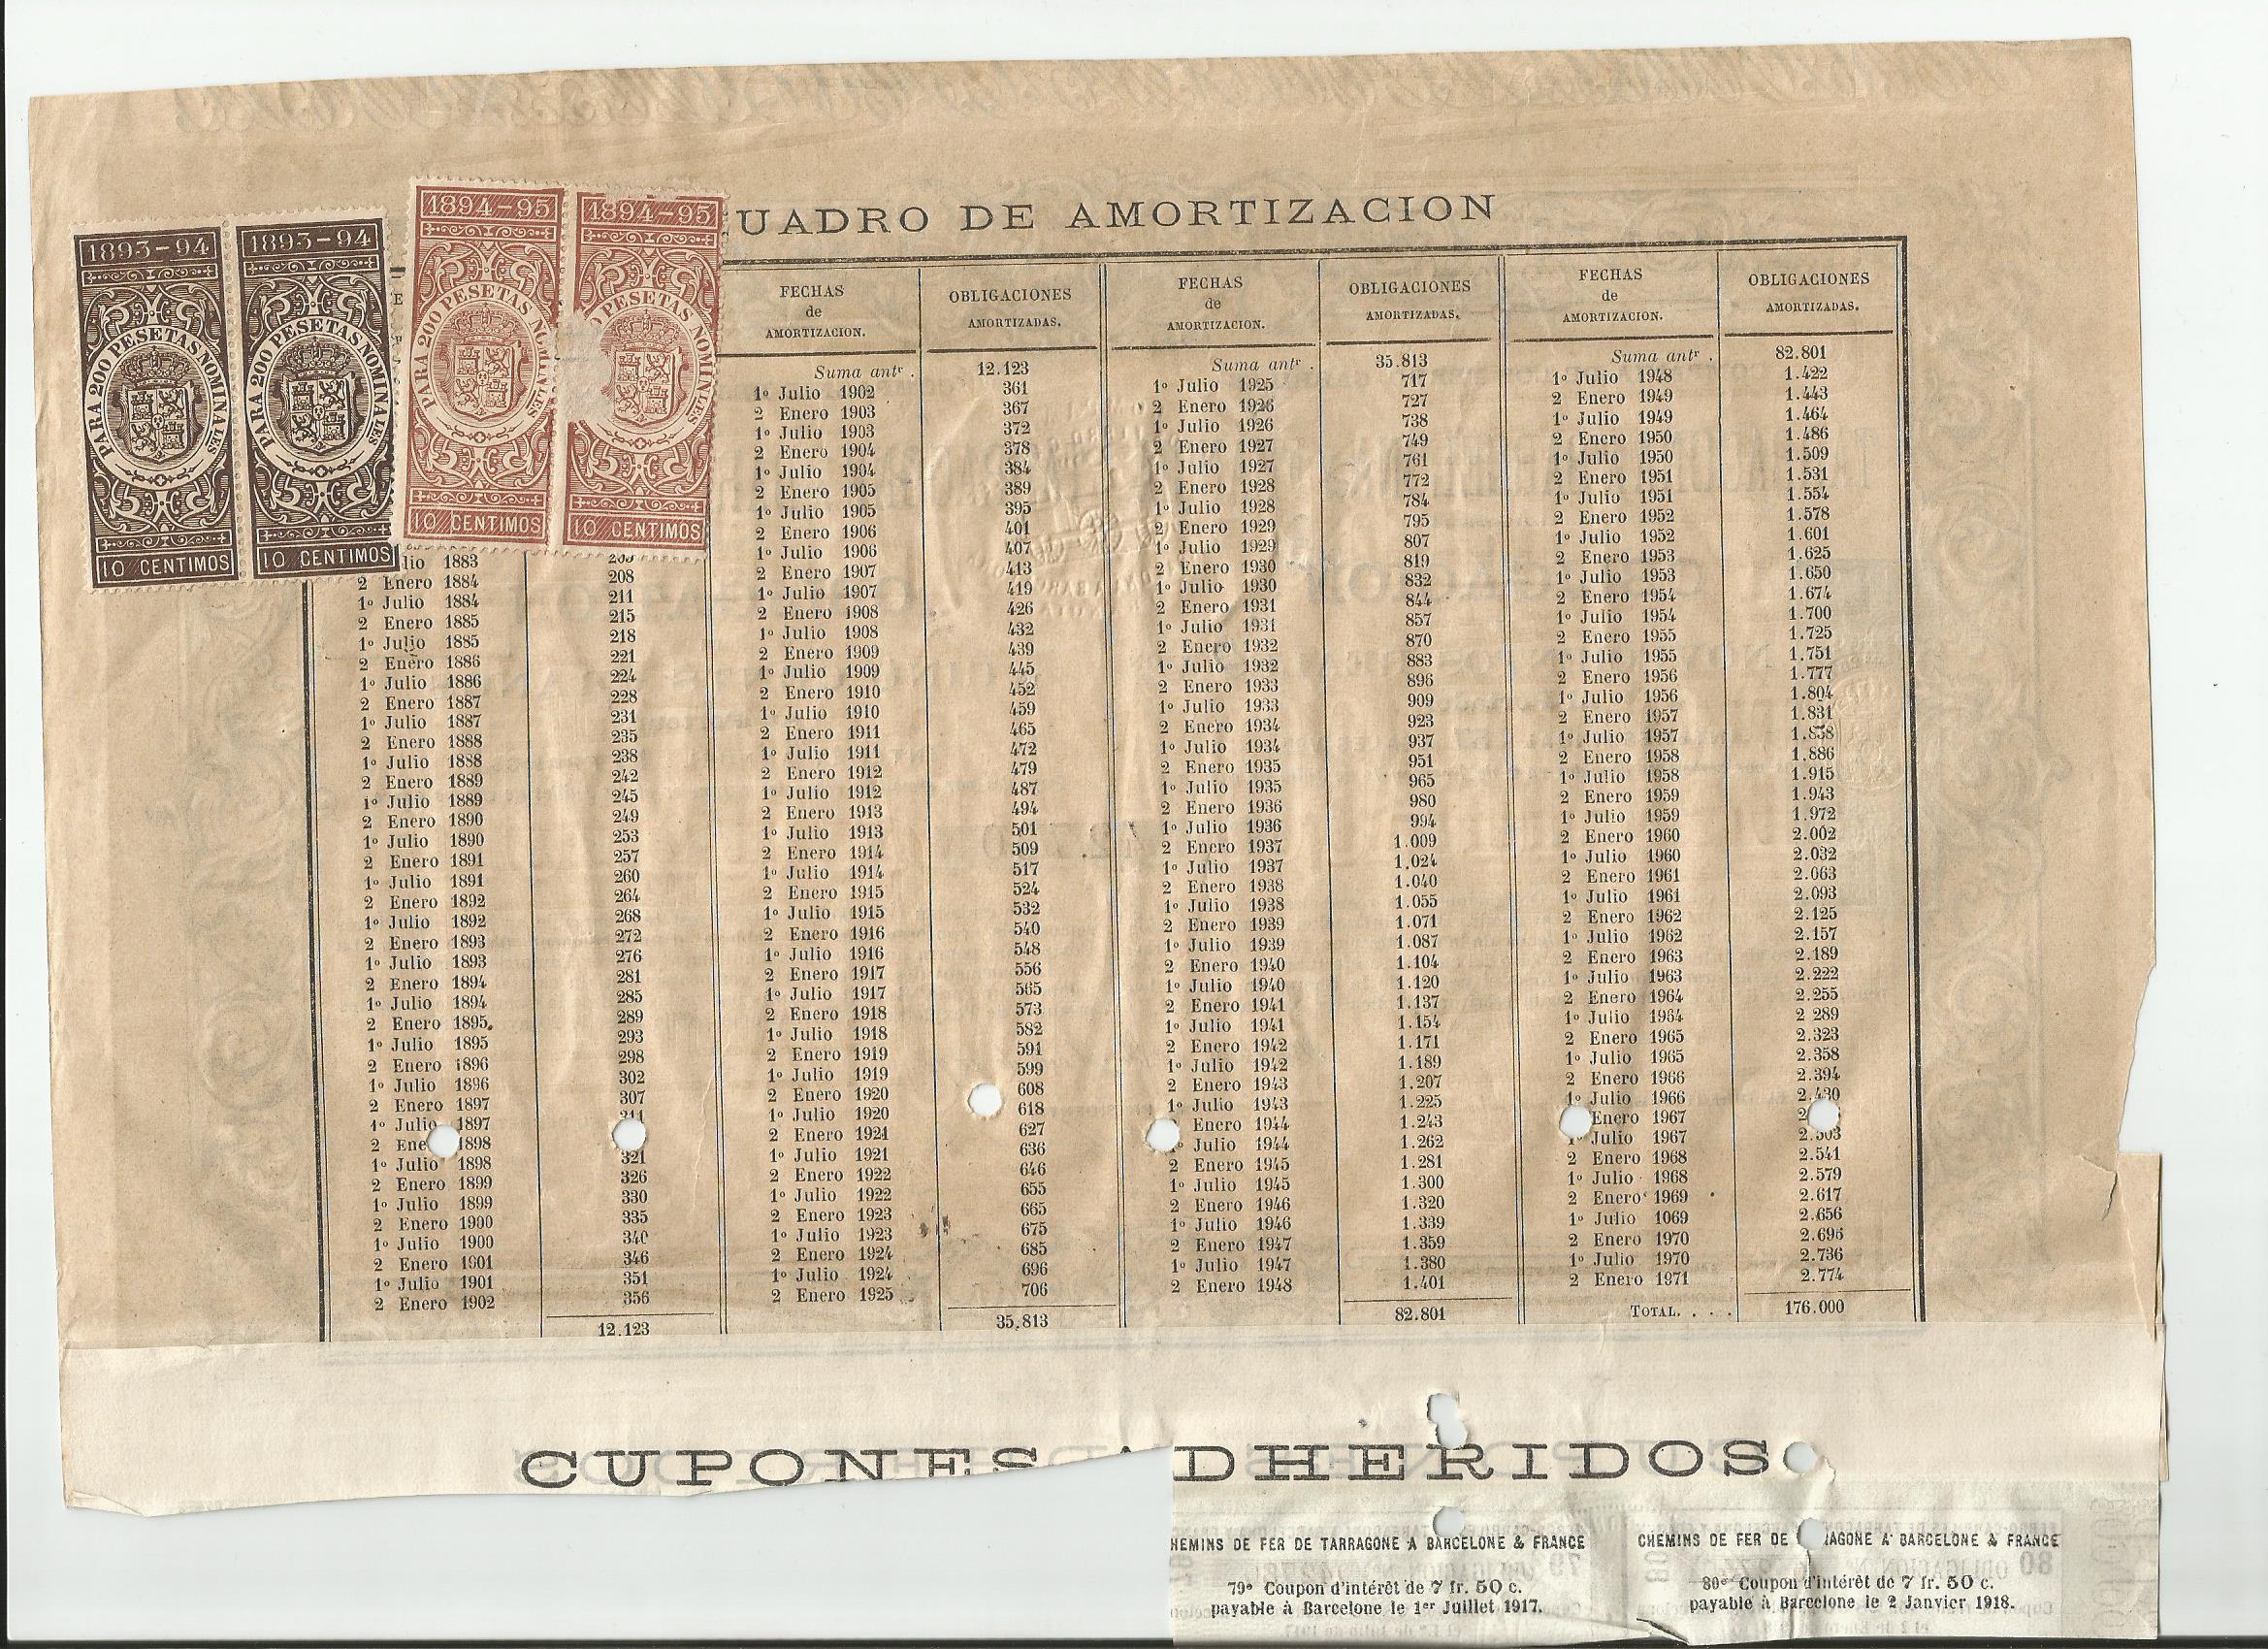 1893-94
PARA 200 PESETAS NOMINALES
10 CENTIMOS
1893-94
PARA 200 PESETAS NOMINALES
10 CENTIMOS
1894-95
PARA 200 PESETAS NOMINALES
10 CENTIMOS
1894-95
PESETAS NOMINALES
10 CENTIMOS
UADRO DE AMORTIZACION
lio 1883
2 Enero 1884 208
1º Julio 1884 211
2 Enero 1885 215
1º Julio 1885 218
2 Enero 1886 221
1º Julio 1886 224
2 Enero 1887 228
1º Julio 1887 231
2 Enero 1888 235
1º Julio 1888 238
2 Enero 1889 242
1º Julio 1889 245
2 Enero 1890 249
1º Julio 1890 253
2 Enero 1891 257
1º Julio 1891 260
2 Enero 1892 264
1º Julio 1892 268
2 Enero 1893 272
1º Julio 1893 276
2 Enero 1894 281
1º Julio 1894 285
2 Enero 1895 289
1º Julio 1895 293
2 Enero 1896 298
1º Julio 1896 302
2 Enero 1897 307
1º Julio 1897
2 Ene 1898
1º Julio 1898 321
2 Enero 1899 326
1º Julio 1899 330
2 Enero 1900 335
1º Julio 1900 340
2 Enero 1901 346
1º Julio 1901 351
2 Enero 1902 356
12.123
FECHAS
de
AMORTIZACION.
OBLIGACIONES
AMORTIZADAS.
Suma antr . 12.123
1º Julio 1902 361
2 Enero 1903 367
1º Julio 1903 372
2 Enero 1904 378
1º Julio 1904 384
2 Enero 1905 389
1º Julio 1905 395
2 Enero 1906 401
1º Julio 1906 407
2 Enero 1907 413
1º Julio 1907 419
2 Enero 1908 426
1º Julio 1908 432
2 Enero 1909 439
1º Julio 1909 445
2 Enero 1910 452
1º Julio 1910 459
2 Enero 1911 465
1º Julio 1911 472
2 Enero 1912 479
1º Julio 1912 487
2 Enero 1913 494
1º Julio 1913 501
2 Enero 1914 509
1º Julio 1914 517
2 Enero 1915 524
1º Julio 1915 532
2 Enero 1916 540
1º Julio 1916 548
2 Enero 1917 556
1º Julio 1917 565
2 Enero 1918 573
1º Julio 1918 582
2 Enero 1919 591
1º Julio 1919 599
2 Enero 1920 608
1º Julio 1920 618
2 Enero 1921 627
1º Julio 1921 636
2 Enero 1922 646
1º Julio 1922 655
2 Enero 1923 665
1º Julio 1923 675
2 Enero 1924 685
1º Julio 1924 696
2 Enero 1925 706
35.813
FECHAS
de
AMORTIZACION.
OBLIGACIONES
AMORTIZADAS.
Suma antr . 35.813
1º Julio 1925 717
2 Enero 1926 727
1º Julio 1926 738
2 Enero 1927 749
1º Julio 1927 761
2 Enero 1928 772
1º Julio 1928 784
2 Enero 1929 795
1º Julio 1929 807
2 Enero 1930 819
1º Julio 1930 832
2 Enero 1931 844
1º Julio 1931 857
2 Enero 1932 870
1º Julio 1932 883
2 Enero 1933 896
1º Julio 1933 909
2 Enero 1934 923
1º Julio 1934 937
2 Enero 1935 951
1º Julio 1935 965
2 Enero 1936 980
1º Julio 1936 994
2 Enero 1937 1.009
1º Julio 1937 1.024
2 Enero 1938 1.040
1º Julio 1938 1.055
2 Enero 1939 1.071
1º Julio 1939 1.087
2 Enero 1940 1.104
1º Julio 1940 1.120
2 Enero 1941 1.137
1º Julio 1941 1.154
2 Enero 1942 1.171
1º Julio 1942 1.189
2 Enero 1943 1.207
1º Julio 1943 1.225
Enero 1944 1.243
Julio 1944 1.262
2 Enero 1945 1.281
1º Julio 1945 1.300
2 Enero 1946 1.320
1º Julio 1946 1.339
2 Enero 1947 1.359
1º Julio 1947 1.380
2 Enero 1948 1.401
82.801
FECHAS
de
AMORTIZACION.
OBLIGACIONES
AMORTIZADAS.
Suma antr . 82.801
1º Julio 1948 1.422
2 Enero 1949 1.443
1º Julio 1949 1.464
2 Enero 1950 1.486
1º Julio 1950 1.509
2 Enero 1951 1.531
1º Julio 1951 1.554
2 Enero 1952 1.578
1º Julio 1952 1.601
2 Enero 1953 1.625
1º Julio 1953 1.650
2 Enero 1954 1.674
1º Julio 1954 1.700
2 Enero 1955 1.725
1º Julio 1955 1.751
2 Enero 1956 1.777
1º Julio 1956 1.804
2 Enero 1957 1.831
1º Julio 1957 1.858
2 Enero 1958 1.886
1º Julio 1958 1.915
2 Enero 1959 1.943
1º Julio 1959 1.972
2 Enero 1960 2.002
1º Julio 1960 2.032
2 Enero 1961 2.063
1º Julio 1961 2.093
2 Enero 1962 2.125
1º Julio 1962 2.157
2 Enero 1963 2.189
1º Julio 1963 2.222
2 Enero 1964 2.255
1º Julio 1964 2 289
2 Enero 1965 2.323
1º Julio 1965 2.358
2 Enero 1966 2.394
1º Julio 1966 2.430
Enero 1967
1º Julio 1967 2.503
2 Enero 1968 2.541
1º Julio 1968 2.579
2 Enero 1969 2.617
1º Julio 1069 2.656
2 Enero 1970 2.696
1º Julio 1970 2.736
2 Enero 1971 2.774
TOTAL. . . . 176.000
CUPONES ADHERIDOS
HEMINS DE FER DE TARRAGONE A BARCELONE & FRANCE
79e Coupon d'intérêt de 7 fr. 50 c.
payable à Barcelone le 1er Juillet 1917.
CHEMINS DE FER DE RAGONE A BARCELONE & FRANCE
80e Coupon d'intérêt de 7 fr. 50 c.
payable à Barcelone le 2 Janvier 1918.